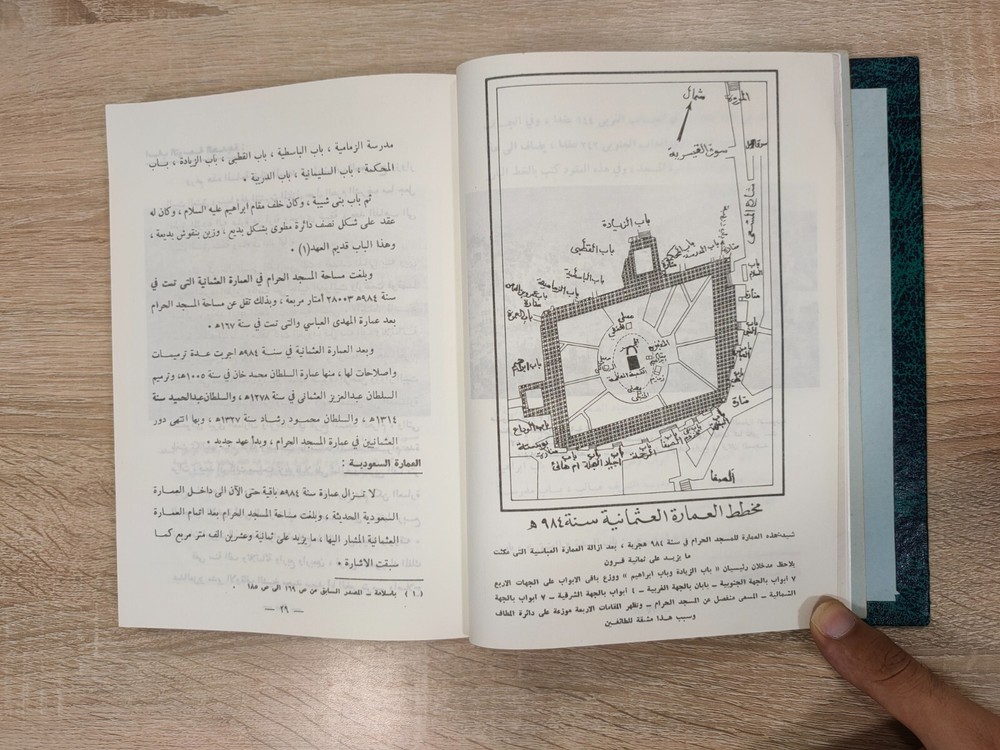 مدرسة الزمامية ، باب الباسطية ، باب القطبي ، باب الزيادة ، بــاب
المحكمة ، باب السليمانية ، باب الدريبة ٠
ثم باب بنى شيبة ، وكان خلف مقام ابراهيم عليه السلام ، وكان له
عقد على شكل نصف دائرة مطوى بشكل بديع ، وزين بنقوش بديعة ،
وهذا الباب قديم العهد(١) ٠
وبلغت مساحة المسجد الحرام في العمارة العثمانية التي تمت في
سنة ٩٨٤هـ ٢٨٠٠٣ أمتار مربعة ، وبذلك تقل عن مساحة المسجد الحرام
بعد عمارة المهدى العباسي والتى تمت في سنة ١٦٧هـ ٠
وبعد العمارة العثمانية في سنة ٩٨٤هـ اجريت عـدة ترميمـات
واصلاحات لها ، منها عمارة السلطان محمد خان في سنة ١٠٠٥هـ، وترميم
السلطان عبدالعزيز العثمانى في سنة ١٢٧٨هـ ، والسلطان عبدالحميد سنة
١٣١٤هـ ، والسلطان محمـود رشـاد سنة ١٣٢٧هـ ، وبها انتهى دور
العثمانيين في عمارة المسجد الحرام ، وبدأ عهد جديد ٠
العمارة السعودية :
لا تـزال عمارة سنة ٩٨٤هـ باقية حتى الآن الى داخـل العمـارة
السعودية الحديثة ، وبلغت مساحة المسجد الحرام بعد اتمام العمـارة
العثمانية المشار اليها ، ما يزيد على ثمانية وعشرين الف متر مربع كمـا
سبقت الاشارة ٠
(١) باسلامة ــ المصدر السابق من ص ١٦٩ الى ص ١٨٨ ٠
— ٢٩ —
شمال
المروة
سوق القيسرية
شارع المسعى
باب الزيادة
باب القطبى
باب الباسطية
باب الزمامية
منارة
باب العمرة
باب السلام
منارة
باب ابراهيم
باب الوداع
منارة
باب أجياد
باب أم هانئ
باب الصفا
الصفا
مخطط العمارة العثمانية سنة ٩٨٤ هـ
شيدت هذه العمارة للمسجد الحرام في سنة ٩٨٤ هجرية ، بعد ازالة العمارة العباسية التي مكثت
ما يزيد على ثمانية قرون
يلاحظ مدخلان رئيسيان » باب الزيادة وباب ابراهيم « ووزع باقى الابواب على الجهات الاربع
٧ ابواب بالجهة الجنوبية ــ بابان بالجهة الغربية ــ ٤ ابواب بالجهة الشرقية ــ ٧ ابواب بالجهة
الشمالية ــ المسعى منفصل عن المسجد الحرام ــ وتظهر المقامات الاربعة موزعة على دائرة المطاف
وسبب هذا مشقة للطائفين